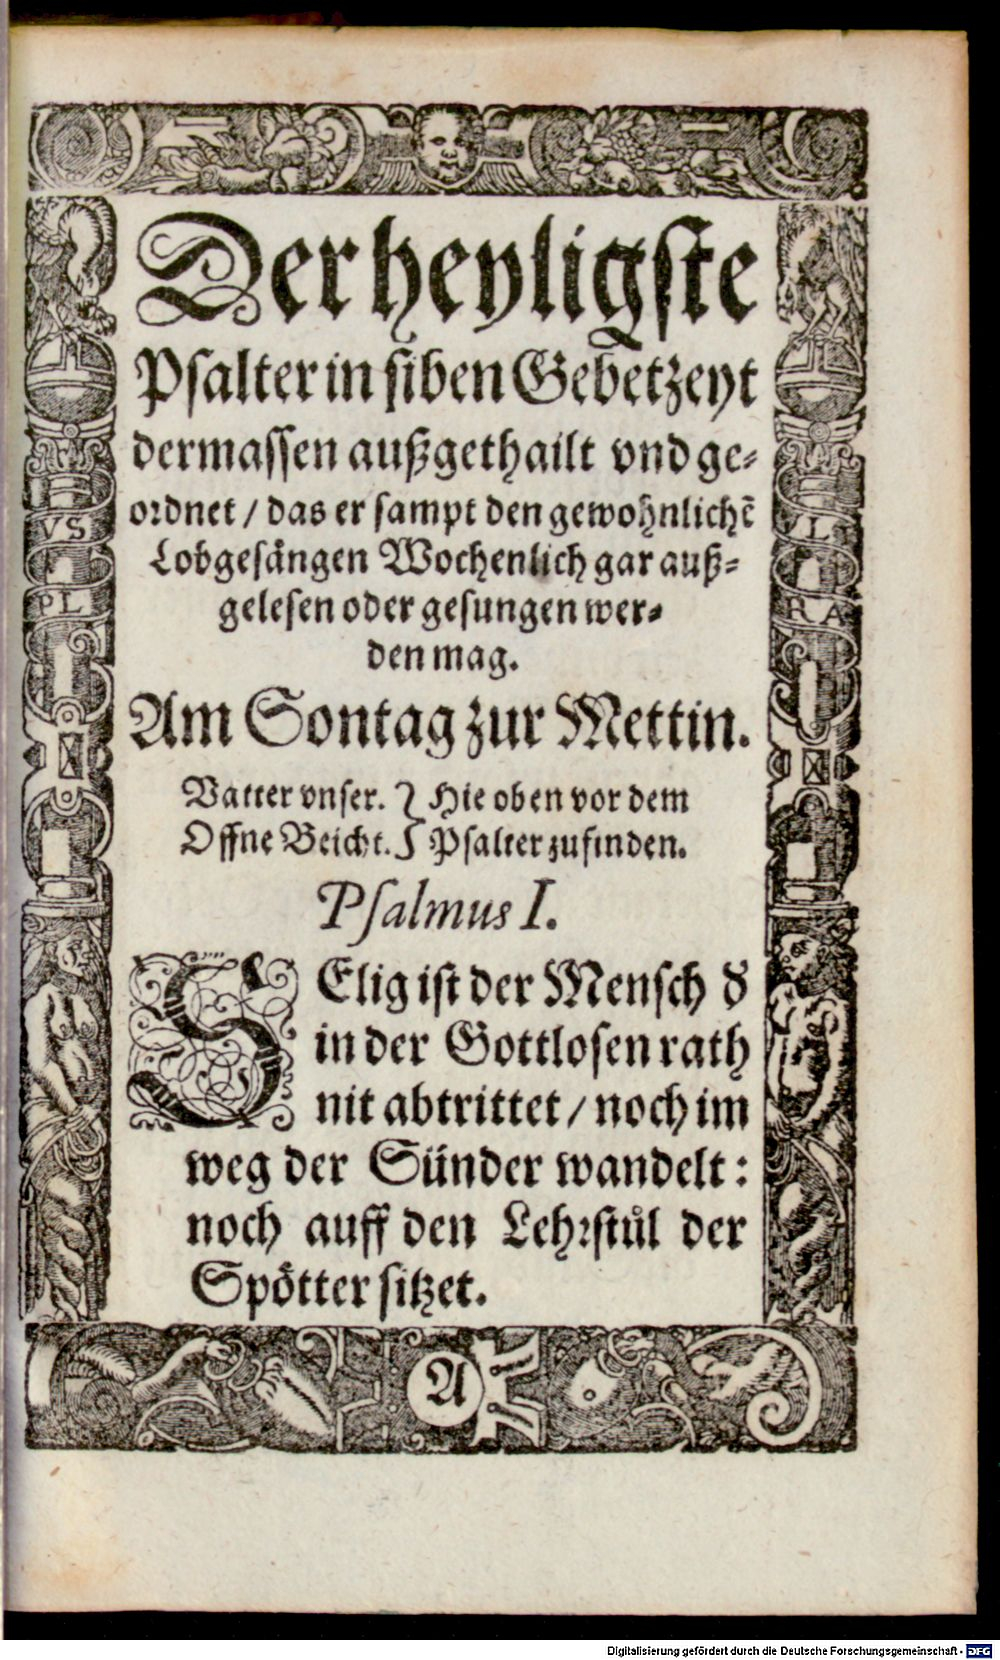 Der heyligste
Psalter in siben Gebetzeyt
dermassen außgethailt vnd ge-
ordnet / das er sampt den gewohnlichẽ
Lobgesängen Wochenlich gar auß-
gelesen oder gesungen wer-
den mag.
Am Sontag zur Mettin.
Vatter vnser. } Hie oben vor dem
Offne Beicht. } Psalter zufinden.
Psalmus I.
SElig ist der Mensch d
in der Gottlosen rath
nit abtrittet / noch im
weg der Sünder wandelt:
noch auff den Lehrstůl der
Spötter sitzet.
A
VS
PL
VL
RA
Digitalisierung gefördert durch die Deutsche Forschungsgemeinschaft - DFG